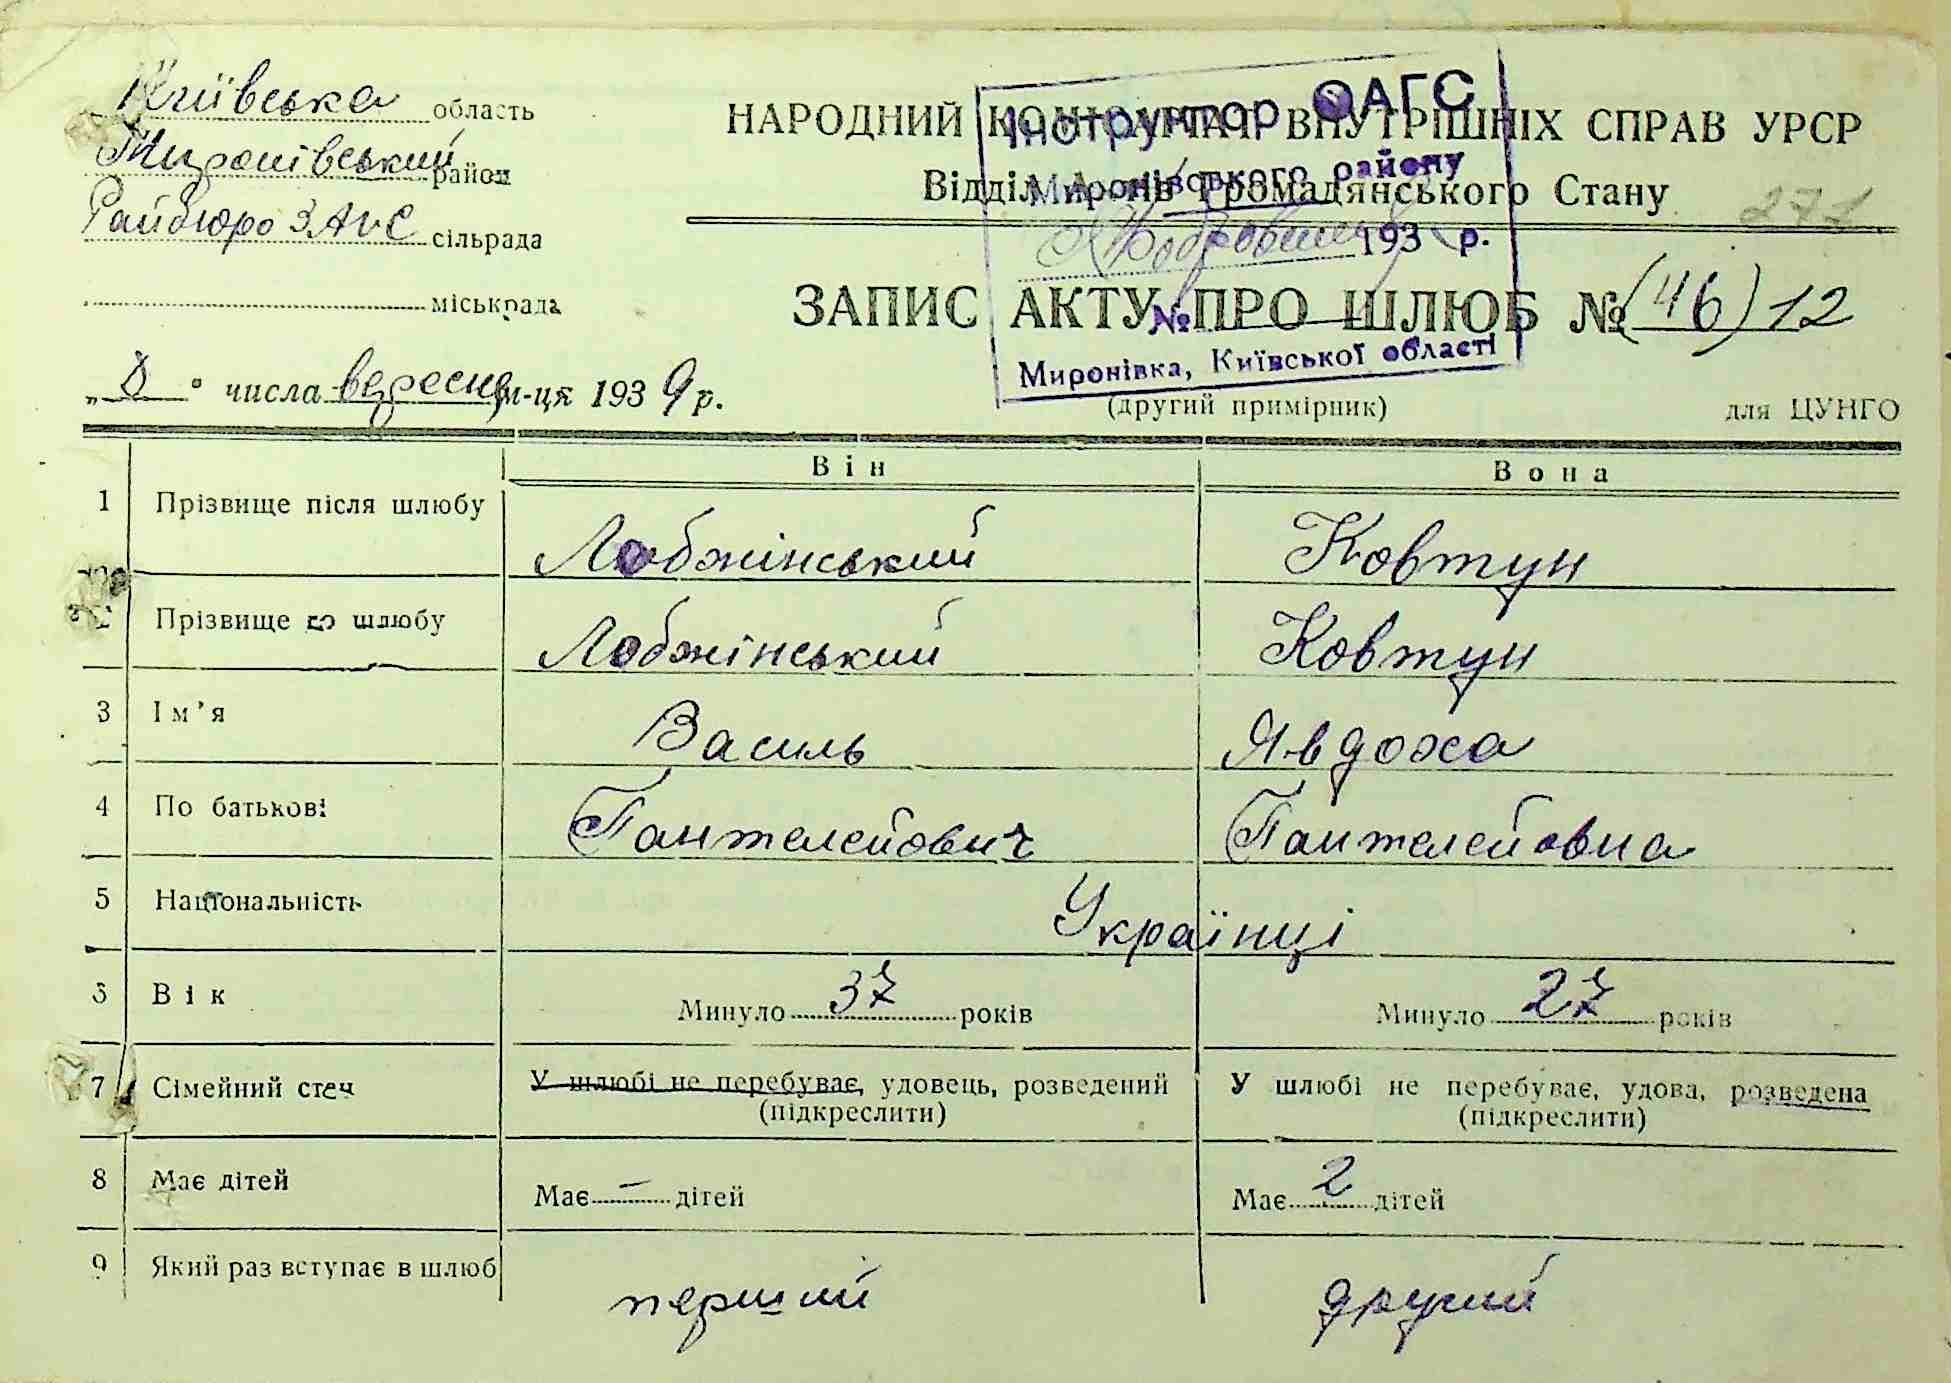 Київська область
Миронівський район
Райбюро ЗАГС сільрада
міськрада
НАРОДНИЙ КОМІСАРІАТ ВНУТРІШНІХ СПРАВ УРСР
Відділ Актів Громадянського Стану
271
Інструктор ОАГС
Миронівського району
193 р.
№
Миронівка, Київської області
ЗАПИС АКТУ ПРО ШЛЮБ № (46) 12
„8" числа вересня м-ця 1939 р.
(другий примірник)
для ЦУНГО
Він
Вона
1 Прізвище після шлюбу Лобжінський Ковтун
2 Прізвище до шлюбу Лобжінський Ковтун
3 Ім'я Василь Явдоха
4 По батькові Пантелейович Пантелейовна
5 Національність Українці
6 Вік Минуло 37 років Минуло 27 років
7 Сімейний стан У шлюбі не перебуває, удовець, розведений У шлюбі не перебуває, удова, розведена
(підкреслити) (підкреслити)
8 Має дітей Має – дітей Має 2 дітей
9 Який раз вступає в шлюб перший другий